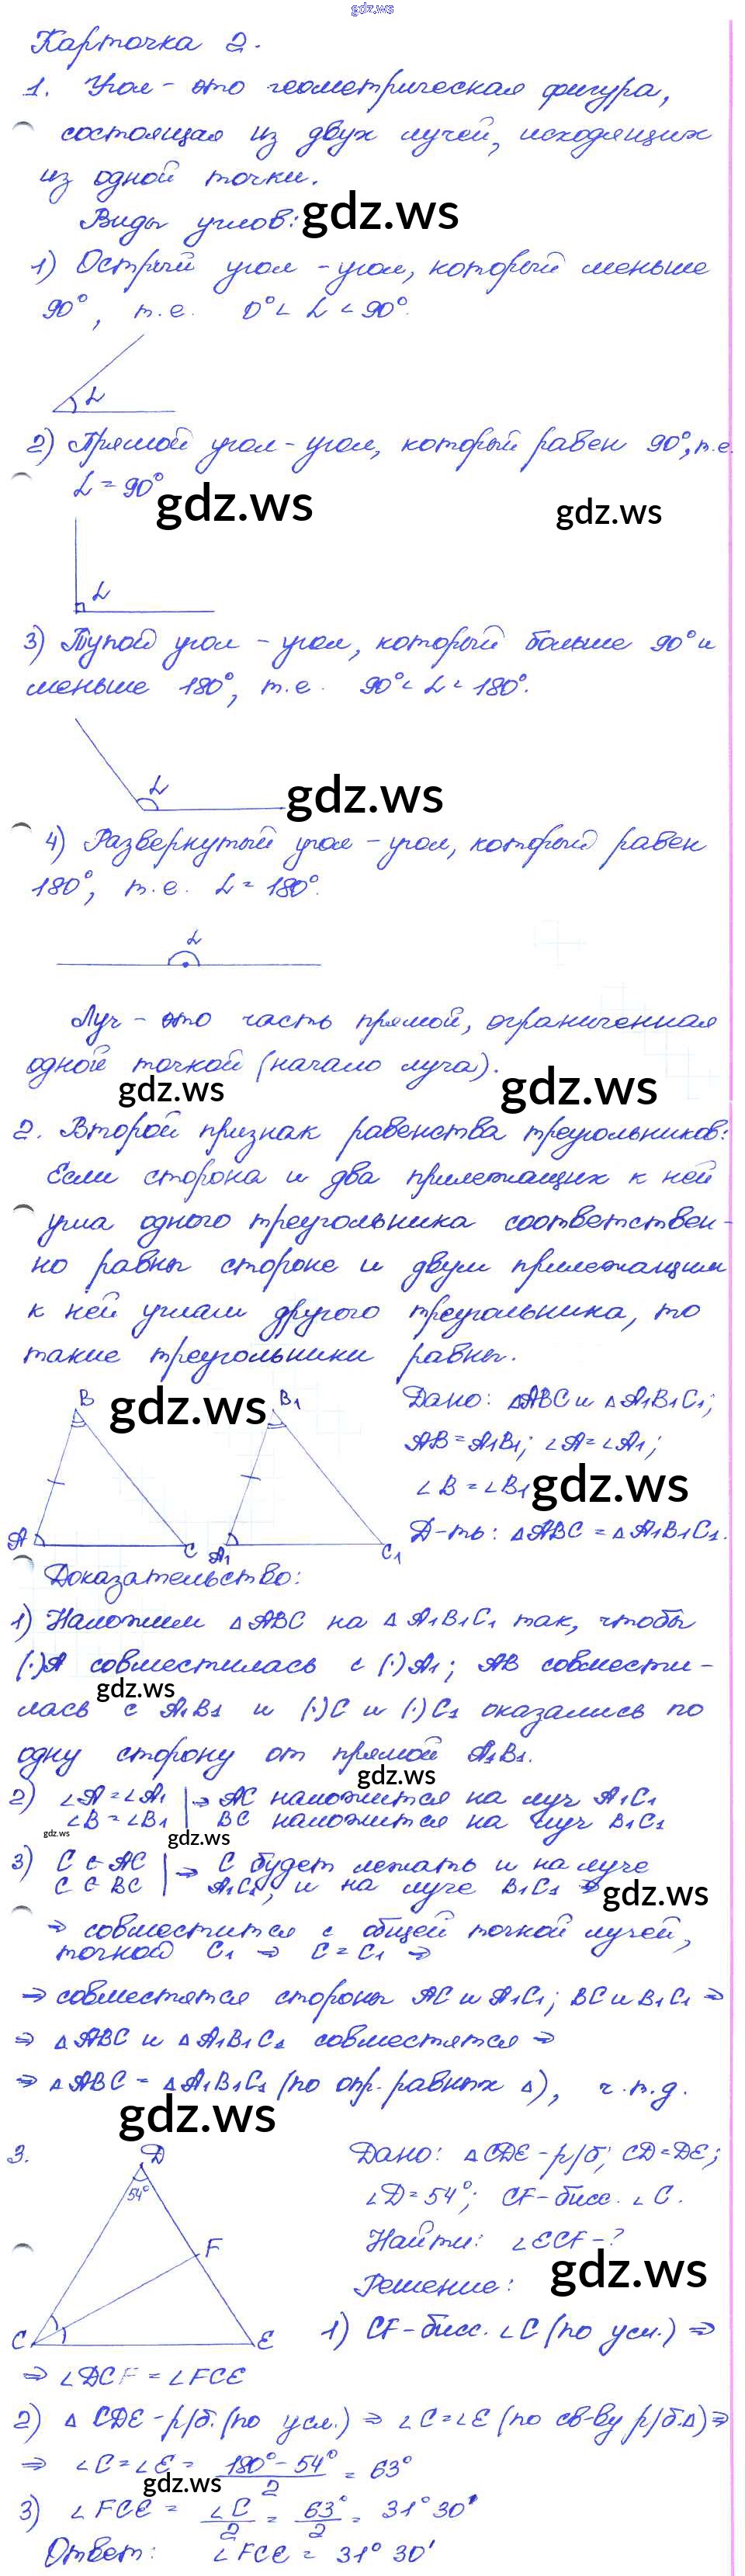 gdz.ws
Карточка 2.
1. Угол - это геометрическая фигура,
состоящая из двух лучей, исходящих
из одной точки.
Виды углов: gdz.ws
1) Острый угол - угол, который меньше
90°, т.е. 0° < L < 90°.
L
2) Прямой угол - угол, который равен 90°, т.е.
L = 90°
gdz.ws gdz.ws
L
3) Тупой угол - угол, который больше 90° и
меньше 180°, т.е. 90° < L < 180°.
L
gdz.ws
4) Развернутый угол - угол, который равен
180°, т.е. L = 180°.
L
Луч - это часть прямой, ограниченная
одной точкой (начало луча).
gdz.ws gdz.ws
2. Второй признак равенства треугольников:
Если сторона и два прилежащих к ней
угла одного треугольника соответствен-
но равны стороне и двум прилежащим
к ней углам другого треугольника, то
такие треугольники равны.
B gdz.ws B₁ Дано: △ABC и △A₁B₁C₁;
AB = A₁B₁; ∠A = ∠A₁;
∠B = ∠B₁ gdz.ws
A C A₁ C₁ Д-ть: △ABC = △A₁B₁C₁.
Доказательство:
1) Наложим △ABC на △A₁B₁C₁ так, чтобы
(·)A совместилась с (·)A₁; AB совмести-
gdz.ws
лась с A₁B₁ и (·)C и (·)C₁ оказались по
одну сторону от прямой A₁B₁.
gdz.ws
2) ∠A = ∠A₁ | ⇒ AC наложится на луч A₁C₁
∠B = ∠B₁ | BC наложится на луч B₁C₁
gdz.ws gdz.ws
3) C ∈ AC | ⇒ C будет лежать и на луче
C ∈ BC | A₁C₁, и на луче B₁C₁ ⇒ gdz.ws
⇒ совместится с общей точкой лучей,
точкой C₁ ⇒ C = C₁ ⇒
⇒ совместятся стороны AC и A₁C₁; BC и B₁C₁ ⇒
⇒ △ABC и △A₁B₁C₁ совместятся ⇒
⇒ △ABC = △A₁B₁C₁ (по опр. равных △), ч.т.д.
gdz.ws
3. D Дано: △CDE - р/б; CD = DE;
54° ∠D = 54°; CF - бисс. ∠C.
F Найти: ∠ECF - ?
Решение: gdz.ws
C E 1) CF - бисс. ∠C (по усл.) ⇒
⇒ ∠DCF = ∠FCE
2) △CDE - р/б. (по усл.) ⇒ ∠C = ∠E (по св-ву р/б.△) ⇒
⇒ ∠C = ∠E = (180° - 54°)/2 = 63°
gdz.ws
3) ∠FCE = ∠C/2 = 63°/2 = 31° 30'
Ответ: ∠FCE = 31° 30'